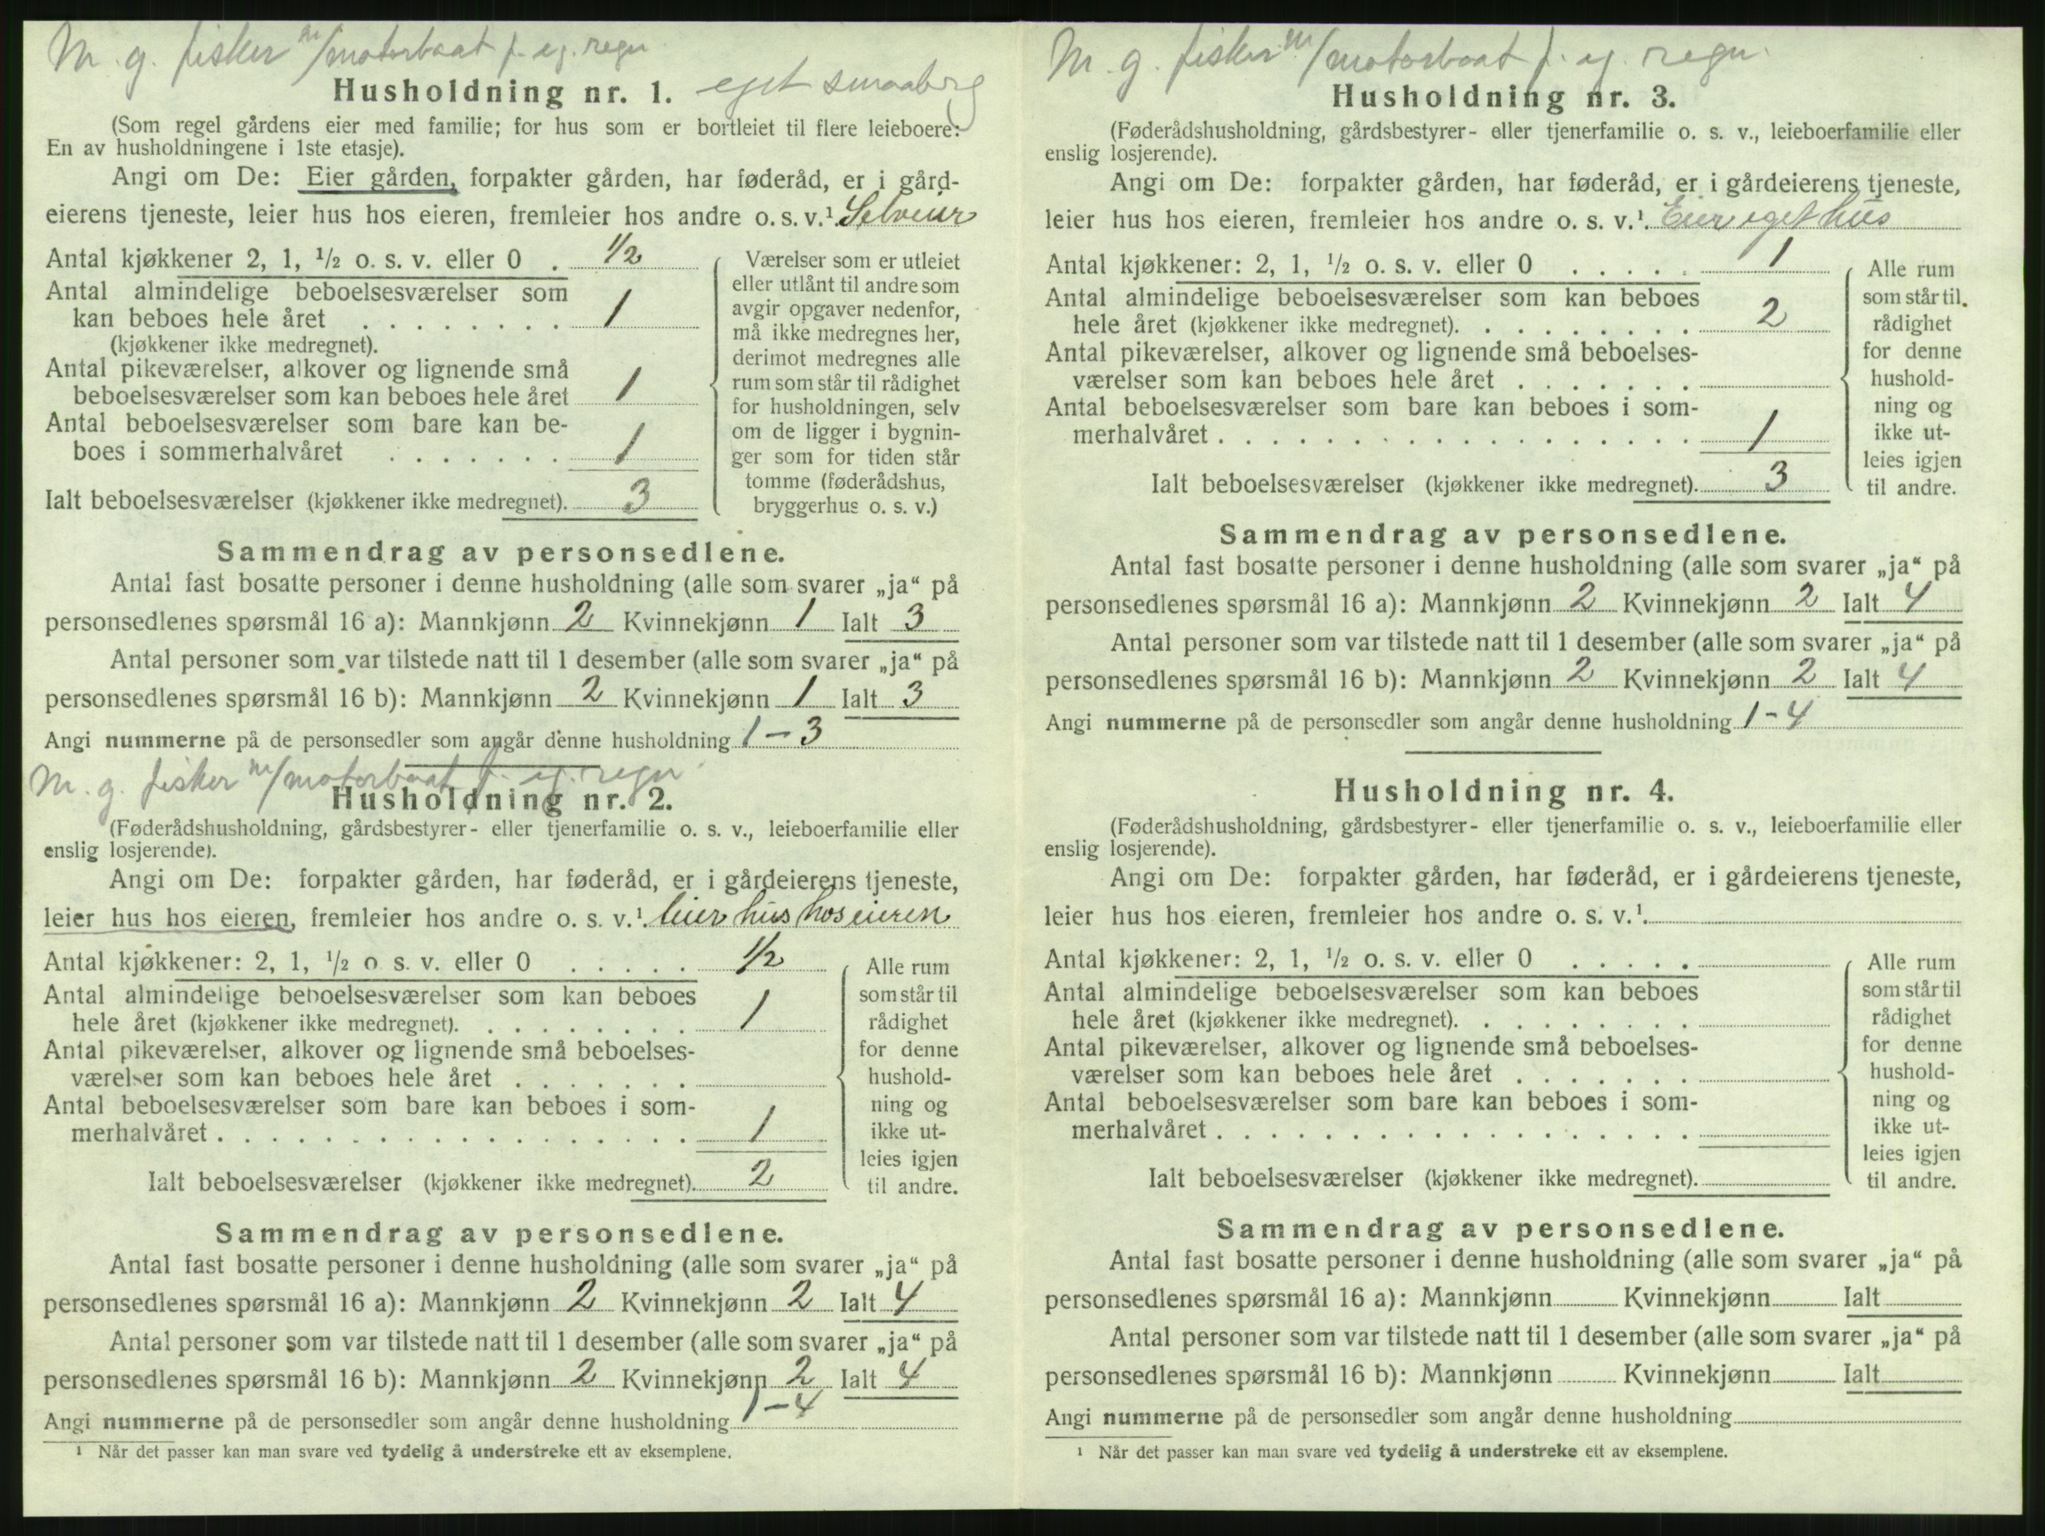 M. g. fisker m/motorbaat f. eg. regn
Husholdning nr. 1. eget smaabrug
(Som regel gårdens eier med familie; for hus som er bortleiet til flere leieboere:
En av husholdningene i 1ste etasje).
Angi om De: Eier gården, forpakter gården, har føderåd, er i gård-
eierens tjeneste, leier hus hos eieren, fremleier hos andre o. s. v.¹ Selveier
Antal kjøkkener 2, 1, ½ o. s. v. eller 0 . ½
Antal almindelige beboelsesværelser som
kan beboes hele året . . . . . . . . 1
(kjøkkener ikke medregnet).
Antal pikeværelser, alkover og lignende små
beboelsesværelser som kan beboes hele året 1
Antal beboelsesværelser som bare kan be-
boes i sommerhalvåret . . . . . . . 1
Ialt beboelsesværelser (kjøkkener ikke medregnet). 3
Værelser som er utleiet
eller utlånt til andre som
avgir opgaver nedenfor,
må ikke medregnes her,
derimot medregnes alle
rum som står til rådighet
for husholdningen, selv
om de ligger i bygnin-
ger som for tiden står
tomme (føderådshus,
bryggerhus o. s. v.)
Sammendrag av personsedlene.
Antal fast bosatte personer i denne husholdning (alle som svarer „ja“ på
personsedlenes spørsmål 16 a): Mannkjønn 2 Kvinnekjønn 1 Ialt 3
Antal personer som var tilstede natt til 1 desember (alle som svarer „ja“ på
personsedlenes spørsmål 16 b): Mannkjønn 2 Kvinnekjønn 1 Ialt 3
Angi nummerne på de personsedler som angår denne husholdning 1 – 3
M. g. fisker m/motorbaat f. eg. regn
Husholdning nr. 2.
(Føderådshusholdning, gårdsbestyrer- eller tjenerfamilie o. s. v., leieboerfamilie eller
enslig losjerende).
Angi om De: forpakter gården, har føderåd, er i gårdeierens tjeneste,
leier hus hos eieren, fremleier hos andre o. s. v.¹ leier hus hos eieren
Antal kjøkkener: 2, 1, ½ o s. v. eller 0 . . . . . ½
Antal almindelige beboelsesværelser som kan beboes
hele året (kjøkkener ikke medregnet). . . . . . . . 1
Antal pikeværelser, alkover og lignende små beboelses-
værelser som kan beboes hele året . . . . . . .
Antal beboelsesværelser som bare kan beboes i som-
merhalvåret . . . . . . . . . . . . . . . . . . 1
Ialt beboelsesværelser (kjøkkener ikke medregnet). 2
Alle rum
som står til
rådighet
for denne
hushold-
ning og
ikke ut-
leies igjen
til andre.
Sammendrag av personsedlene.
Antal fast bosatte personer i denne husholdning (alle som svarer „ja“ på
personsedlenes spørsmål 16 a): Mannkjønn 2 Kvinnekjønn 2 Ialt 4
Antal personer som var tilstede natt til 1 desember (alle som svarer „ja“ på
personsedlenes spørsmål 16 b): Mannkjønn 2 Kvinnekjønn 2 Ialt 4
Angi nummerne på de personsedler som angår denne husholdning 1 – 4
¹ Når det passer kan man svare ved tydelig å understreke ett av eksemplene.
M. g. fisker m/motorbaat f. eg. regn.
Husholdning nr. 3.
(Føderådshusholdning, gårdsbestyrer- eller tjenerfamilie o. s. v., leieboerfamilie eller
enslig losjerende).
Angi om De: forpakter gården, har føderåd, er i gårdeierens tjeneste,
leier hus hos eieren, fremleier hos andre o. s. v.¹. Eier eget hus
Antal kjøkkener: 2, 1, ½ o. s. v. eller 0 . . . . . 1
Antal almindelige beboelsesværelser som kan beboes
hele året (kjøkkener ikke medregnet). . . . . . . . 2
Antal pikeværelser, alkover og lignende små beboelses-
værelser som kan beboes hele året . . . . . . .
Antal beboelsesværelser som bare kan beboes i som-
merhalvåret . . . . . . . . . . . . . . . . . . 1
Ialt beboelsesværelser (kjøkkener ikke medregnet). 3
Alle rum
som står til
rådighet
for denne
hushold-
ning og
ikke ut-
leies igjen
til andre.
Sammendrag av personsedlene.
Antal fast bosatte personer i denne husholdning (alle som svarer „ja“ på
personsedlenes spørsmål 16 a): Mannkjønn 2 Kvinnekjønn 2 Ialt 4
Antal personer som var tilstede natt til 1 desember (alle som svarer „ja“ på
personsedlenes spørsmål 16 b): Mannkjønn 2 Kvinnekjønn 2 Ialt 4
Angi nummerne på de personsedler som angår denne husholdning 1 – 4
Husholdning nr. 4.
(Føderådshusholdning, gårdsbestyrer- eller tjenerfamilie o. s. v., leieboerfamilie eller
enslig losjerende).
Angi om De: forpakter gården, har føderåd, er i gårdeierens tjeneste,
leier hus hos eieren, fremleier hos andre o. s. v.¹.
Antal kjøkkener: 2, 1, ½ o. s. v. eller 0 . . . . .
Antal almindelige beboelsesværelser som kan beboes
hele året (kjøkkener ikke medregnet). . . . . . . .
Antal pikeværelser, alkover og lignende små beboelses-
værelser som kan beboes hele året . . . . . . .
Antal beboelsesværelser som bare kan beboes i som-
merhalvåret . . . . . . . . . . . . . . . . . .
Ialt beboelsesværelser (kjøkkener ikke medregnet).
Alle rum
som står til
rådighet
for denne
hushold-
ning og
ikke ut-
leies igjen
til andre.
Sammendrag av personsedlene.
Antal fast bosatte personer i denne husholdning (alle som svarer „ja“ på
personsedlenes spørsmål 16 a): Mannkjønn Kvinnekjønn Ialt
Antal personer som var tilstede natt til 1 desember (alle som svarer „ja“ på
personsedlenes spørsmål 16 b): Mannkjønn Kvinnekjønn Ialt
Angi nummerne på de personsedler som angår denne husholdning
¹ Når det passer kan man svare ved tydelig å understreke ett av eksemplene.